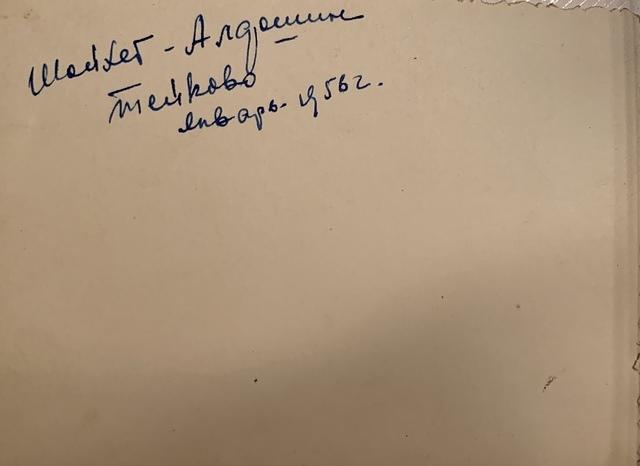 Шайхет - Алдошин
Тейково
январь. 1956 г.